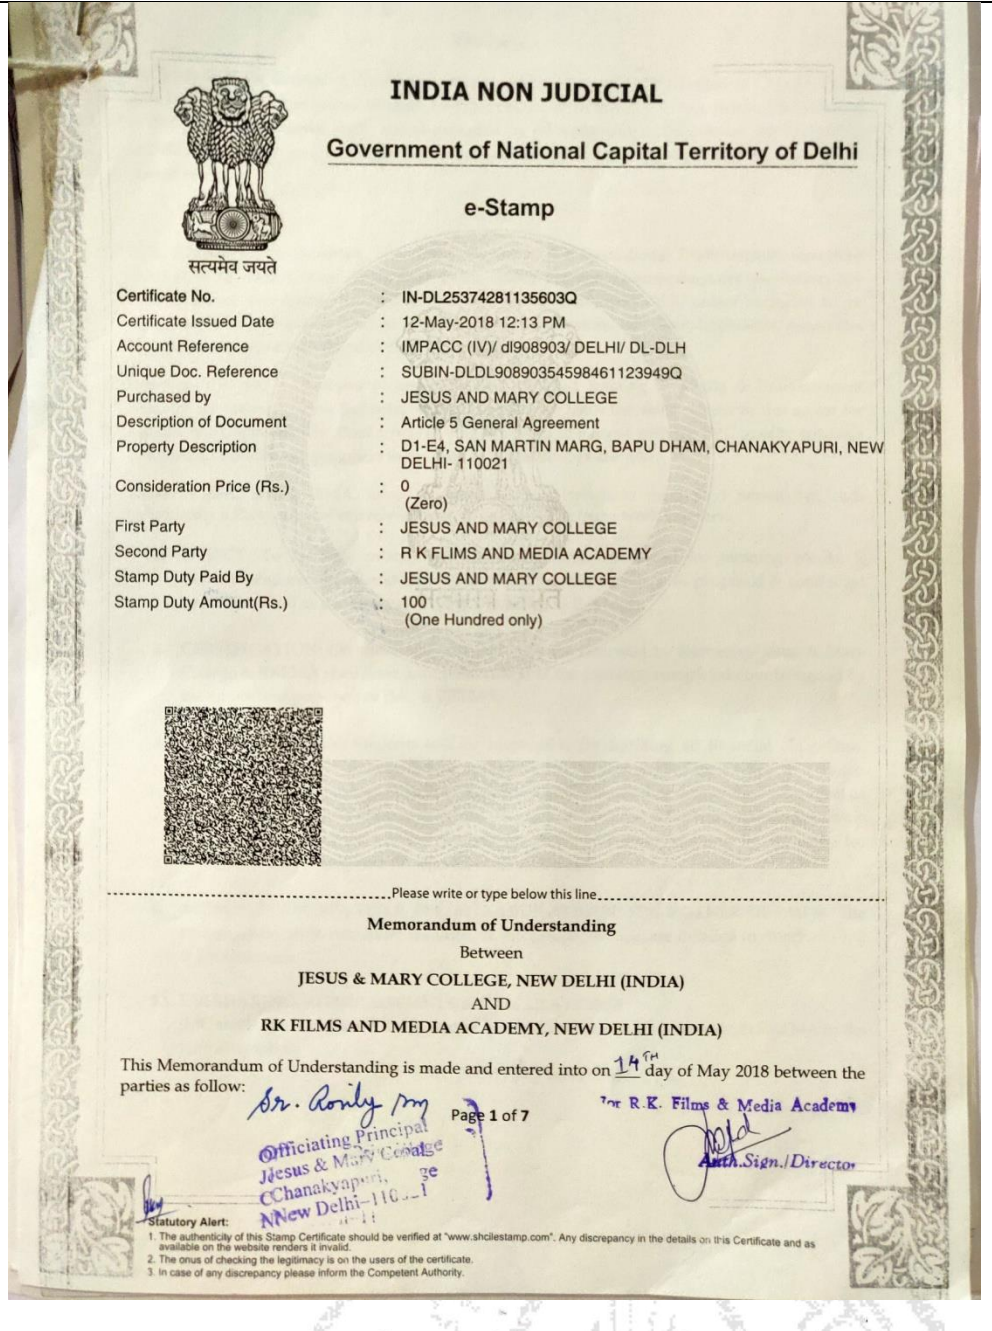 INDIA NON JUDICIAL
Government of National Capital Territory of Delhi
e-Stamp
सत्यमेव जयते
Certificate No. : IN-DL25374281135603Q
Certificate Issued Date : 12-May-2018 12:13 PM
Account Reference : IMPACC (IV)/ dl908903/ DELHI/ DL-DLH
Unique Doc. Reference : SUBIN-DLDL90890354598461123949Q
Purchased by : JESUS AND MARY COLLEGE
Description of Document : Article 5 General Agreement
Property Description : D1-E4, SAN MARTIN MARG, BAPU DHAM, CHANAKYAPURI, NEW
DELHI- 110021
Consideration Price (Rs.) : 0
(Zero)
First Party : JESUS AND MARY COLLEGE
Second Party : R K FLIMS AND MEDIA ACADEMY
Stamp Duty Paid By : JESUS AND MARY COLLEGE
Stamp Duty Amount(Rs.) : 100
(One Hundred only)
Please write or type below this line
Memorandum of Understanding
Between
JESUS & MARY COLLEGE, NEW DELHI (INDIA)
AND
RK FILMS AND MEDIA ACADEMY, NEW DELHI (INDIA)
This Memorandum of Understanding is made and entered into on 14TH day of May 2018 between the
parties as follow:
For R.K. Films & Media Academy
Sr.
Page 1 of 7
Officiating Principal
Jesus & Mary College
Chanakyapuri,
New Delhi-110021
Auth.Sign./Director
Statutory Alert:
1. The authenticity of this Stamp Certificate should be verified at "www.shcilestamp.com". Any discrepancy in the details on this Certificate and as
available on the website renders it invalid.
2. The onus of checking the legitimacy is on the users of the certificate.
3. In case of any discrepancy please inform the Competent Authority.